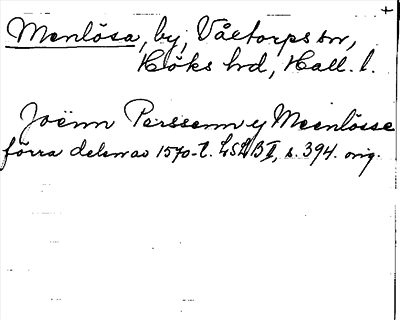 Menlösa, by, Våxtorps sn,
Höks hd, Hall. l.
Joënn Perssenn y Meenlösse
förra delen av 1570-t. LSLB II, s. 394. orig.